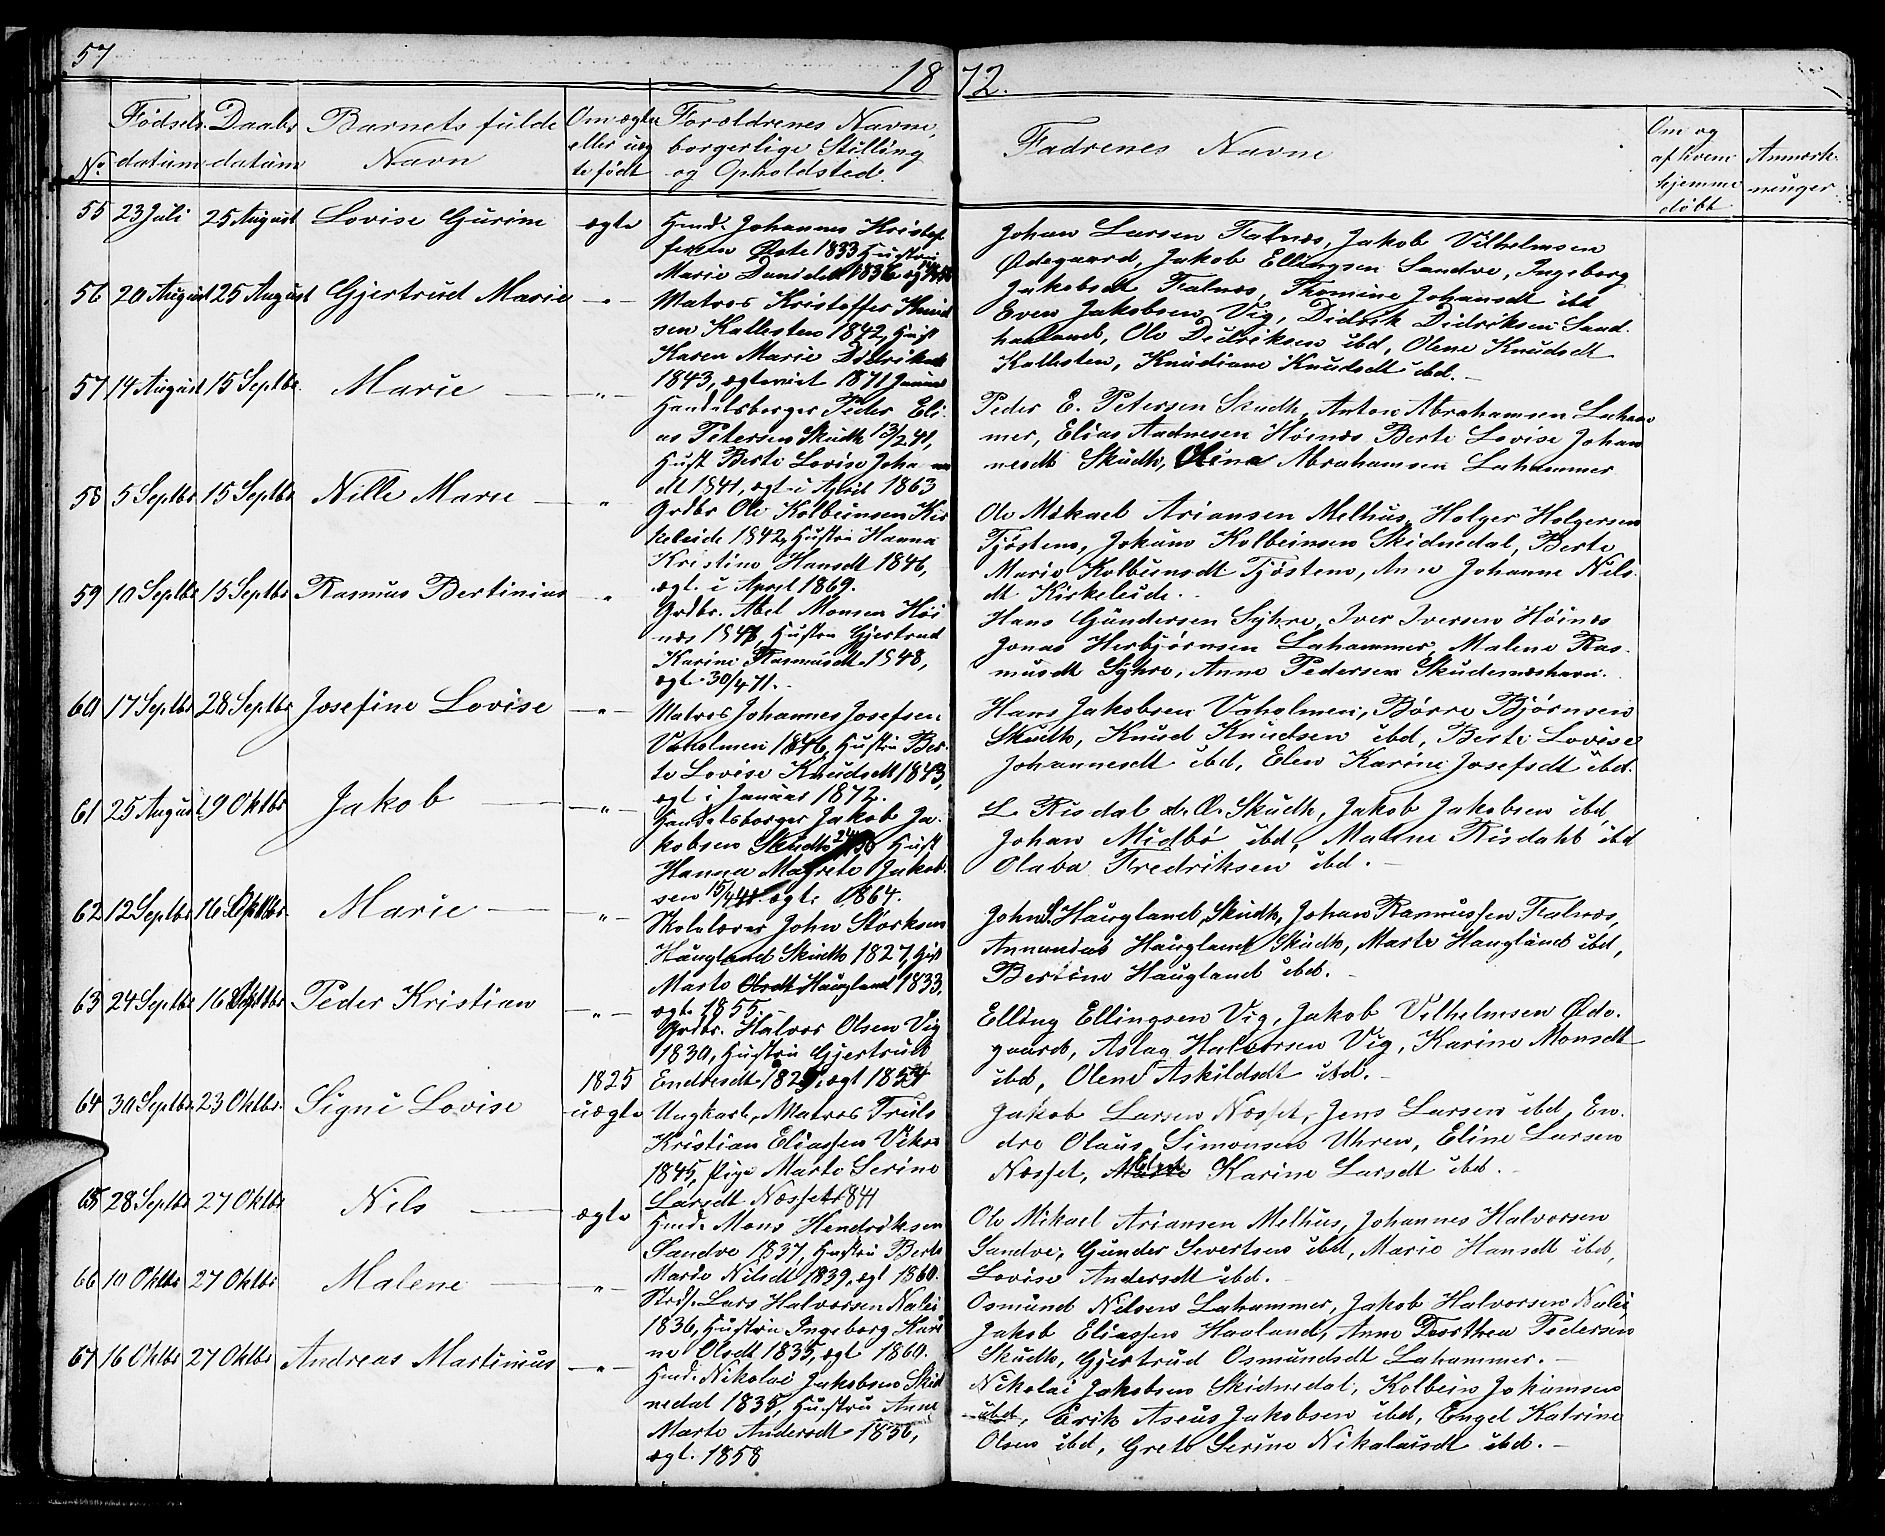 57
18 72.
No. Fødsels datum Daabs datum Barnets fulde Navn Om ægte eller uæg te født Forældrenes Navne, borgerlige Stilling og Opholdsted. Fadrenes Navne Om og af hvem hjemme døbt Anmærk- ninger
55 23 Juli 25 August Lovise Gurine ægte
Hmd. Johannes Kristof
fersen Øste 1833 Hustru
Marie Danieldt 1836
Johan Larsen Falnæs, Jakob Vilhelmsen
Ødegaard, Jakob Ellingsen Sandve, Ingeborg
Jakobsdt Falnæs, Thomine Johansdt ibd
56 20 August 25 August Gjertrud Marie -"-
Matros Kristoffer Knud
sen Kallesten 1842, Hust
Karen Marie Didriksdt
1843, ægteviet 1871 Januar
Even Jakobsen Vig, Didrik Didriksen Sand-
haaland, Ole Didriksen ibd, Olene Knudsdt
Kallesten, Knudiane Knudsdt ibd.-
57 14 August 15 Septbr. Marie -"-
Handelsborger Peder Eli-
as Petersen Skudh 13/2 41,
Hust Berte Lovise Joha nn
dt 1841, ægt i April 1863
Peder E. Petersen Skudh, Anton Abrahamsen Laham
mer, Elias Aadnesen Høinæs Berte Lovise Johan
nesdt Skudh, Olina Abrahamsen Lahammer
58 5 Septbr 15 Septbr Nille Marie "
Grdbr Ole Kolbeinsen Kir
keleide 1842, Hustru Hanna
Kristine Hansdt 1846,
ægt. i April 1869.
Ole Mikael Ariansen Melhus, Holger Holgersen
Tjøstem, Johan Kolbeinsen Skidnedal, Berte
Marie Kolbeinsdt Tjøstem, Ane Johanne Nils-
dt Kirkeleide.
59 10 Septbr 15 Septbr Rasmus Bertinius "
Grdbr. Abel Monsen Høi
næs 1847, Hustru Gjertrud
Karine Rasmusdt 1848,
ægt. 30/4 71.
Hans Gundersen Syhre, Iver Iversen Høinæs
Jonas Herbjørnsen Lahammer, Malene Ras-
musdt Syhre, Anne Pedersen Skudenæshavn.
60 17 Septbr 28 Septbr Josefine Lovise -"-
Matros Johannes Josefsen
Vaholmen 1846, Hustru Ber-
te Lovise Knudsdt 1843,
ægt i Januar 1872.
Hans Jakobsen Vaholmen, Børre Bjørnsen
Skudh, Knud Knudsen ibd, Berte Lovise
Johannesdt ibd, Elen Karine Josefsdt ibd.
61 25 August 9 Oktbr Jakob -"-
Handelsborger Jakob Ja-
kobsen Skudh Hust
Hanna Margrete Jakob
sen 15/4 41 ægt. 1864.
L. Risdal d. Æ. Skudh, Jakob Jakobsen ibd,
Johan Midbø ibd, Maline Risdahl ibd
Olaba Fredriksen ibd.-
62 12 Septbr 16 Oktbr Marie -"-
Skolelærer John Størksen
Haugland Skudh 1827, Hust
Marte Olsdt Haugland 1833,
ægt. 1855.-
John S. Haugland, Skudh, Johan Rasmussen Falnæs,
Annanias Haugland Skudh, Marte Haugland ibd,
Bertine Haugland ibd.-
63 24 Septbr 16 Oktbr Peder Kristian -"-
Grdbr. Halvor Olsen Vig
1830, Hustru Gjertrud
1825 Endresdt 1825, ægt 1854
Elling Ellingsen Vig, Jakob Vilhelmsen Øde-
gaard, Aslag Halvorsen Vig, Karine Monsdt
ibd, Olene Askildsdt ibd.-
64 30 Septbr 23 Oktbr. Signi Lovise uægte
Ungkarl, Matros Truls
Kristian Eliassen Viken
1845, Pige Marte Serine
Larsdt Næsset 1841
Jakob Larsen Næsset, Jens Larsen ibd, En-
dre Olaus Simonsen Uhren, Eline Larsen
Næsset, Marte Elen Karine Larsdt ibd.-
65 28 Septbr 27 Oktbr Nils ægte
Hmd. Mons Hendriksen
Sandve 1837, Hustru Berte
Marie Nilsdt 1839, ægt 1860.
Ole Mikael Ariansen Melhus, Johannes Halvorsen
Sandve, Gunder Sivertsen ibd, Marie Hansdt ibd,
Lovise Andersdt ibd.-
66 10 Oktbr 27 Oktbr Malene -"-
Strds. Lars Halvorsen Nalei
1836, Hustru Ingeborg Kari
ne Olsdt 1835, ægt 1860.
Osmund Nilsen Lahammer, Jakob Halvorsen Nalei,
Jakob Eliassen Haaland, Anne Dorthea Pedersen
Skudh, Gjertrud Osmundsdt Lahammer.-
67 16 Oktbr 27 Oktbr. Andreas Martinius -"-
Hmd. Nikolai Jakobsen Skid
nedal 1835, Hustru Anne
Marte Andersdt 1836,
ægt. 1858
Nikolai Jakobsen Skidnedal, Kolbein Johansen
ibd, Erik Aseus Jakobsen ibd, Engel Katrine
Olsen ibd, Grete Serine Nikolaisdt ibd.-